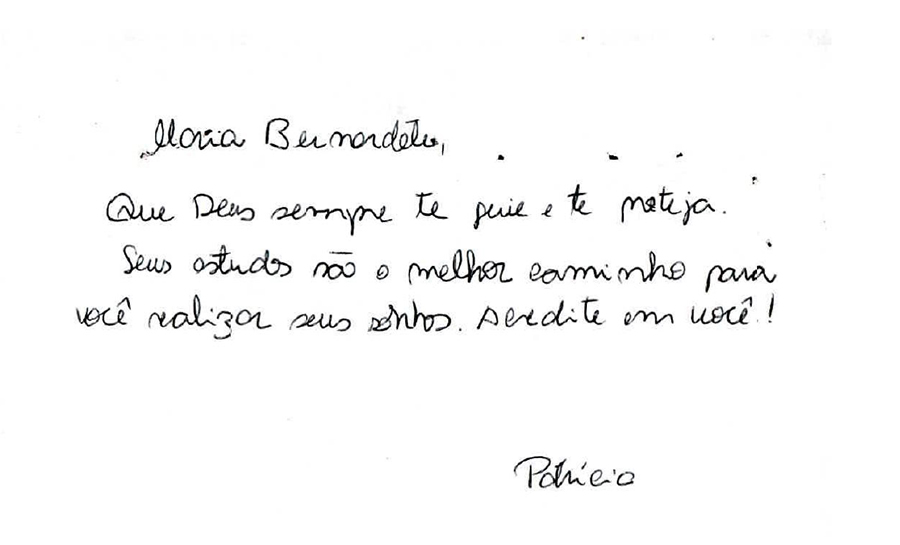 Maria Bernardete,
Que Deus sempre te guie e te proteja.
Seus estudos são o melhor caminho para
você realizar seus sonhos. Acredite em você!
Patrícia